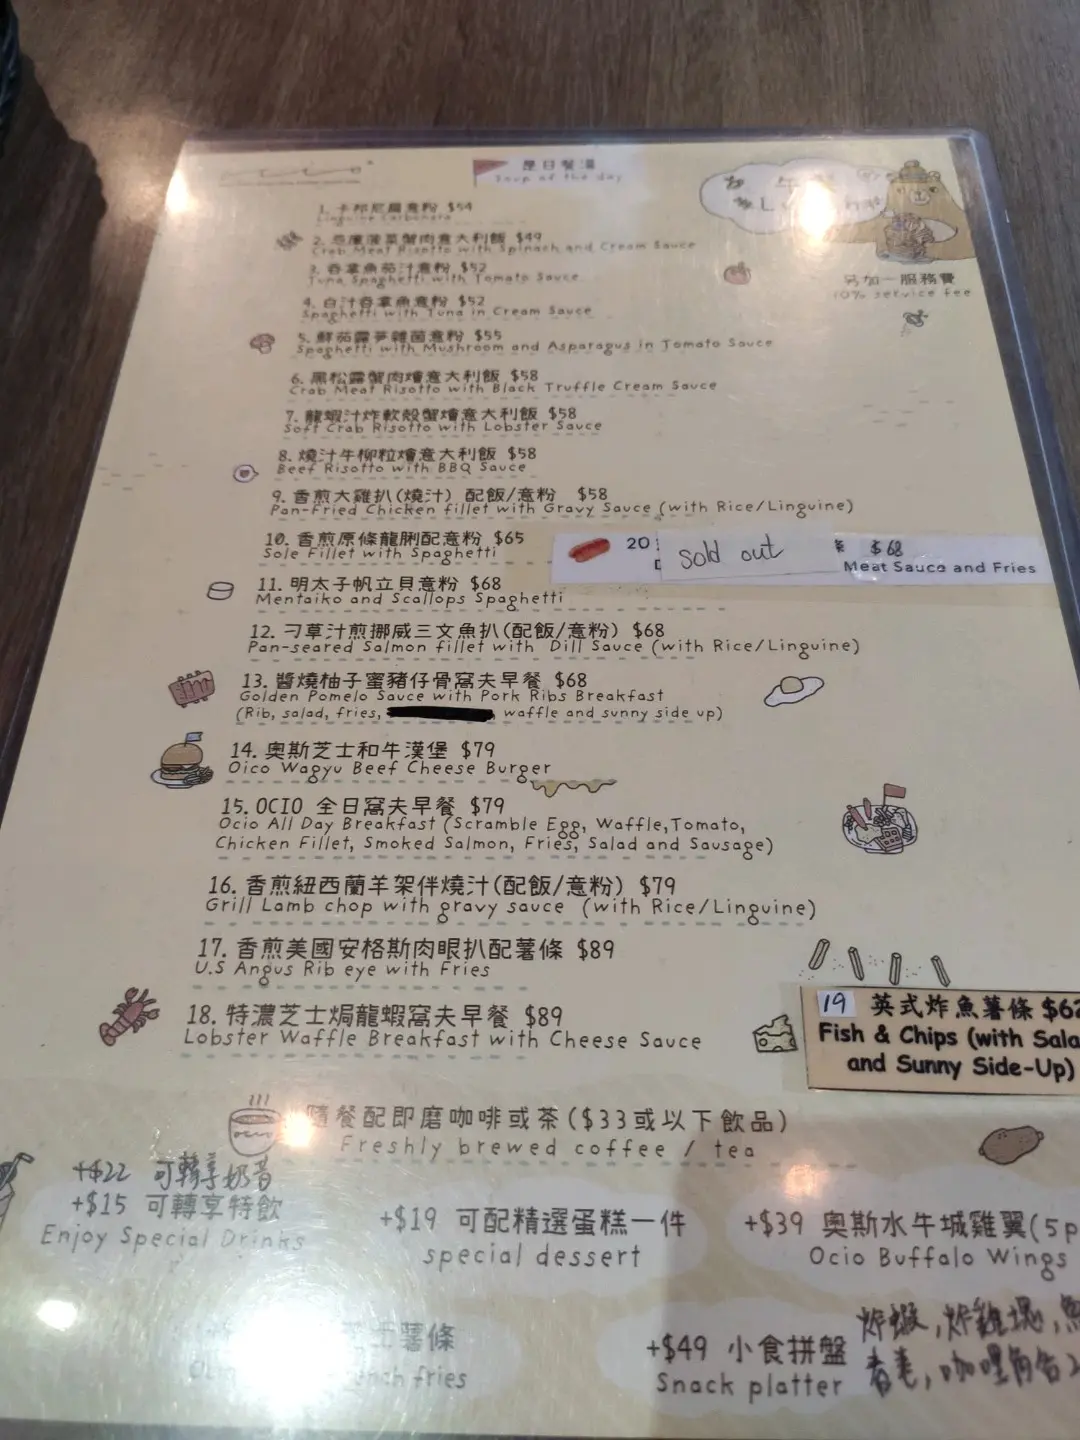 是日餐湯
Soup of the day
1. 卡邦尼扁意粉 $54
Linguine Carbonara
2. 忌廉菠菜蟹肉意大利飯 $49
Crab Meat Risotto with Spinach and Cream Sauce
3. 吞拿魚茄汁意粉 $52
Tuna Spaghetti with Tomato Sauce
另加一服務費
10% service fee
4. 白汁吞拿魚意粉 $52
Spaghetti with Tuna in Cream Sauce
5. 鮮茄露笋雜菌意粉 $55
Spaghetti with Mushroom and Asparagus in Tomato Sauce
6. 黑松露蟹肉燴意大利飯 $58
Crab Meat Risotto with Black Truffle Cream Sauce
7. 龍蝦汁炸軟殼蟹燴意大利飯 $58
Soft Crab Risotto with Lobster Sauce
8. 燒汁牛柳粒燴意大利飯 $58
Beef Risotto with BBQ Sauce
9. 香煎大雞扒(燒汁) 配飯/意粉 $58
Pan-Fried Chicken fillet with Gravy Sauce (with Rice/Linguine)
10. 香煎原條龍脷配意粉 $65
Sole Fillet with Spaghetti
20
sold out
$68
Meat Sauce and Fries
11. 明太子帆立貝意粉 $68
Mentaiko and Scallops Spaghetti
12. 刁草汁煎挪威三文魚扒(配飯/意粉) $68
Pan-seared Salmon fillet with Dill Sauce (with Rice/Linguine)
13. 醬燒柚子蜜豬仔骨窩夫早餐 $68
Golden Pomelo Sauce with Pork Ribs Breakfast
(Rib, salad, fries, waffle and sunny side up)
14. 奧斯芝士和牛漢堡 $79
Oico Wagyu Beef Cheese Burger
15. OCIO 全日窩夫早餐 $79
Ocio All Day Breakfast (Scramble Egg, Waffle,Tomato,
Chicken Fillet, Smoked Salmon, Fries, Salad and Sausage)
16. 香煎紐西蘭羊架伴燒汁(配飯/意粉) $79
Grill Lamb chop with gravy sauce (with Rice/Linguine)
17. 香煎美國安格斯肉眼扒配薯條 $89
U.S Angus Rib eye with Fries
18. 特濃芝士焗龍蝦窩夫早餐 $89
Lobster Waffle Breakfast with Cheese Sauce
19 英式炸魚薯條 $62
Fish & Chips (with Sala
and Sunny Side-Up)
隨餐配即磨咖啡或茶($33或以下飲品)
Freshly brewed coffee / tea
+$22 可轉享奶昔
+$15 可轉享特飲
Enjoy Special Drinks
+$19 可配精選蛋糕一件
special dessert
+$39 奧斯水牛城雞翼(5p
Ocio Buffalo Wings
士薯條
fries
+$49 小食拼盤
Snack platter
炸蝦,炸雞塊,
春卷,咖喱角